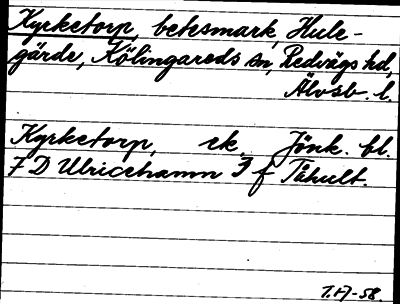 Kyrketorp, betesmark, Hule-
gärde, Kölingareds sn, Redvägs hd,
Älvsb. l.
Kyrketorp, ek. Jönk. bl.
7 D Ulricehamn 9 f Tåhult.
T.H-58.